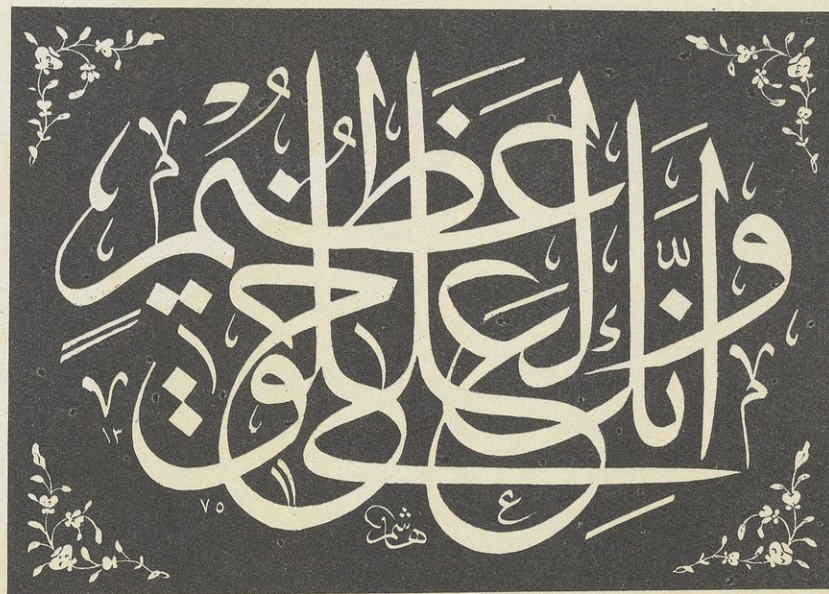 وَإِنَّكَ لَعَلَىٰ خُلُقٍ عَظِيمٍ
هاشم
١٣
٧٥